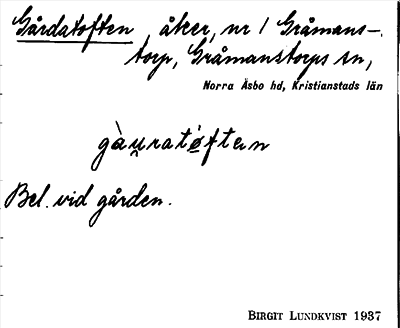 Gårdatoften, åker, nr 1 Gråmans-
torp, Gråmanstorps sn,
Norra Åsbo hd, Kristianstads län
gàu̯ratǿften
Bel. vid gården.
BIRGIT LUNDKVIST 1937